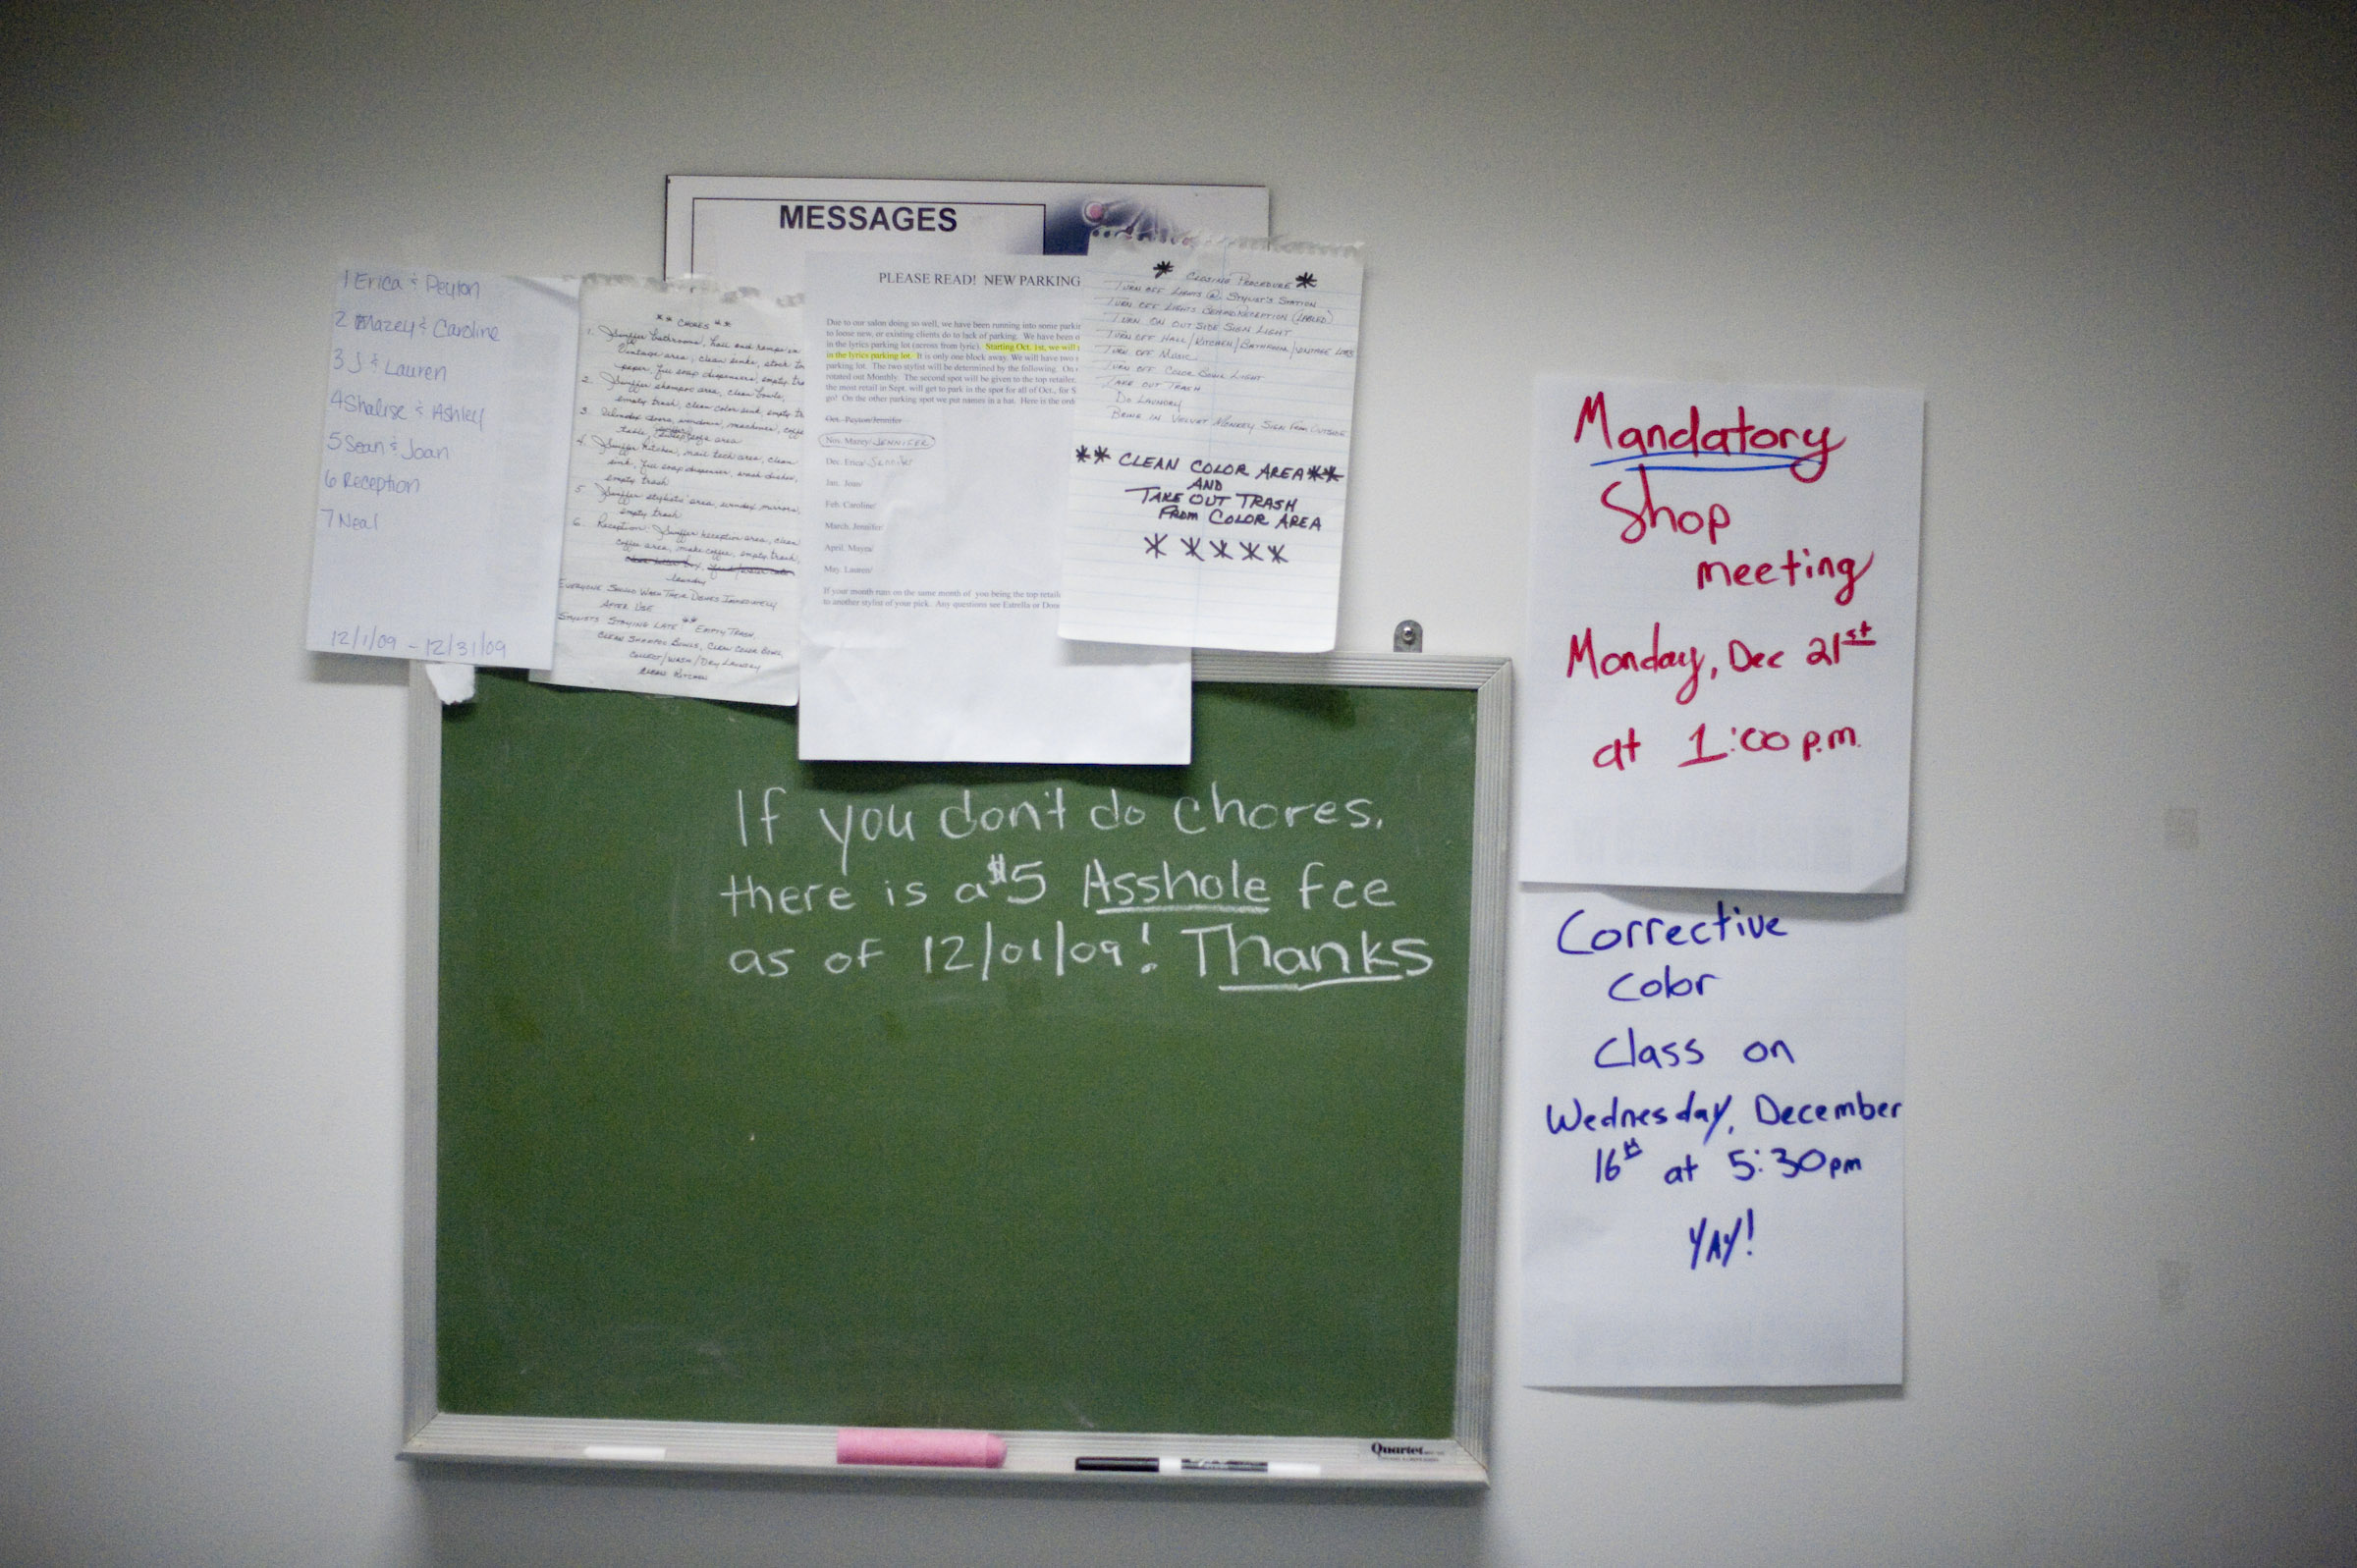 MESSAGES
1 Erica & Peyton
2 Mazey & Caroline
3 J & Lauren
4 Shalise & Ashley
5 Sean & Joan
6 Reception
7 Neal
12/1/09 - 12/31/09
** CHORES **
1. Swiffer bathrooms, hall and ramps in
Vintage area, clean sinks, stock
paper, fill soap dispensers, empty
2. Swiffer shampoo area, clean bowls,
empty trash, clean color sink, empty
3. Windex doors, windows, machines,
table area
4. Swiffer kitchen, nail tech area, clean
sink, fill soap dispenser, wash dishes,
empty trash
5. Swiffer stylists' area, windex mirrors,
empty trash
6. Reception: Swiffer reception area, clean
coffee area, make coffee, empty trash,
laundry
EVERYONE SHOULD WASH THEIR DISHES IMMEDIATELY
AFTER USE
STYLISTS STAYING LATE ** EMPTY TRASH,
CLEAN SHAMPOO BOWLS, CLEAN COLOR BOWL,
COLLECT/WASH/DRY LAUNDRY
CLEAN KITCHEN
PLEASE READ! NEW PARKING
Due to our salon doing so well, we have been running into some
to loose new, or existing clients do to lack of parking. We have been
in the lyrics parking lot (across from lyric). Starting Oct. 1st, we will
in the lyrics parking lot. It is only one block away. We will have two
parking lot. The two stylist will be determined by the following. On
rotated out Monthly. The second spot will be given to the top retailer.
the most retail in Sept. will get to park in the spot for all of Oct., for
go! On the other parking spot we put names in a hat. Here is the
Oct. Peyton/Jennifer
Nov. Mazey/ JENNIFER
Dec. Erica/ Jennifer
Jan. Joan/
Feb. Caroline/
March. Jennifer/
April.
May. Lauren/
If your month runs on the same month of you being the top
to another stylist of your pick. Any questions see Estrella or
* CLOSING PROCEDURE *
TURN OFF LIGHTS @ STYLIST'S STATION
TURN OFF LIGHTS BEHIND RECEPTION (LABELED)
TURN ON OUTSIDE SIGN LIGHT
TURN OFF HALL/KITCHEN/BATHROOM/VINTAGE
TURN OFF MUSIC
TURN OFF COLOR BOWL LIGHT
TAKE OUT TRASH
DO LAUNDRY
BRING IN VELVET MONKEY SIGN FROM OUTSIDE
** CLEAN COLOR AREA **
AND
TAKE OUT TRASH
FROM COLOR AREA
* * * * *
If you don't do chores,
there is a $5 Asshole fee
as of 12/01/09! Thanks
Quartet
Mandatory
Shop
meeting
Monday, Dec 21st
at 1:00 p.m.
Corrective
Color
Class on
Wednesday, December
16th at 5:30pm
YAY!